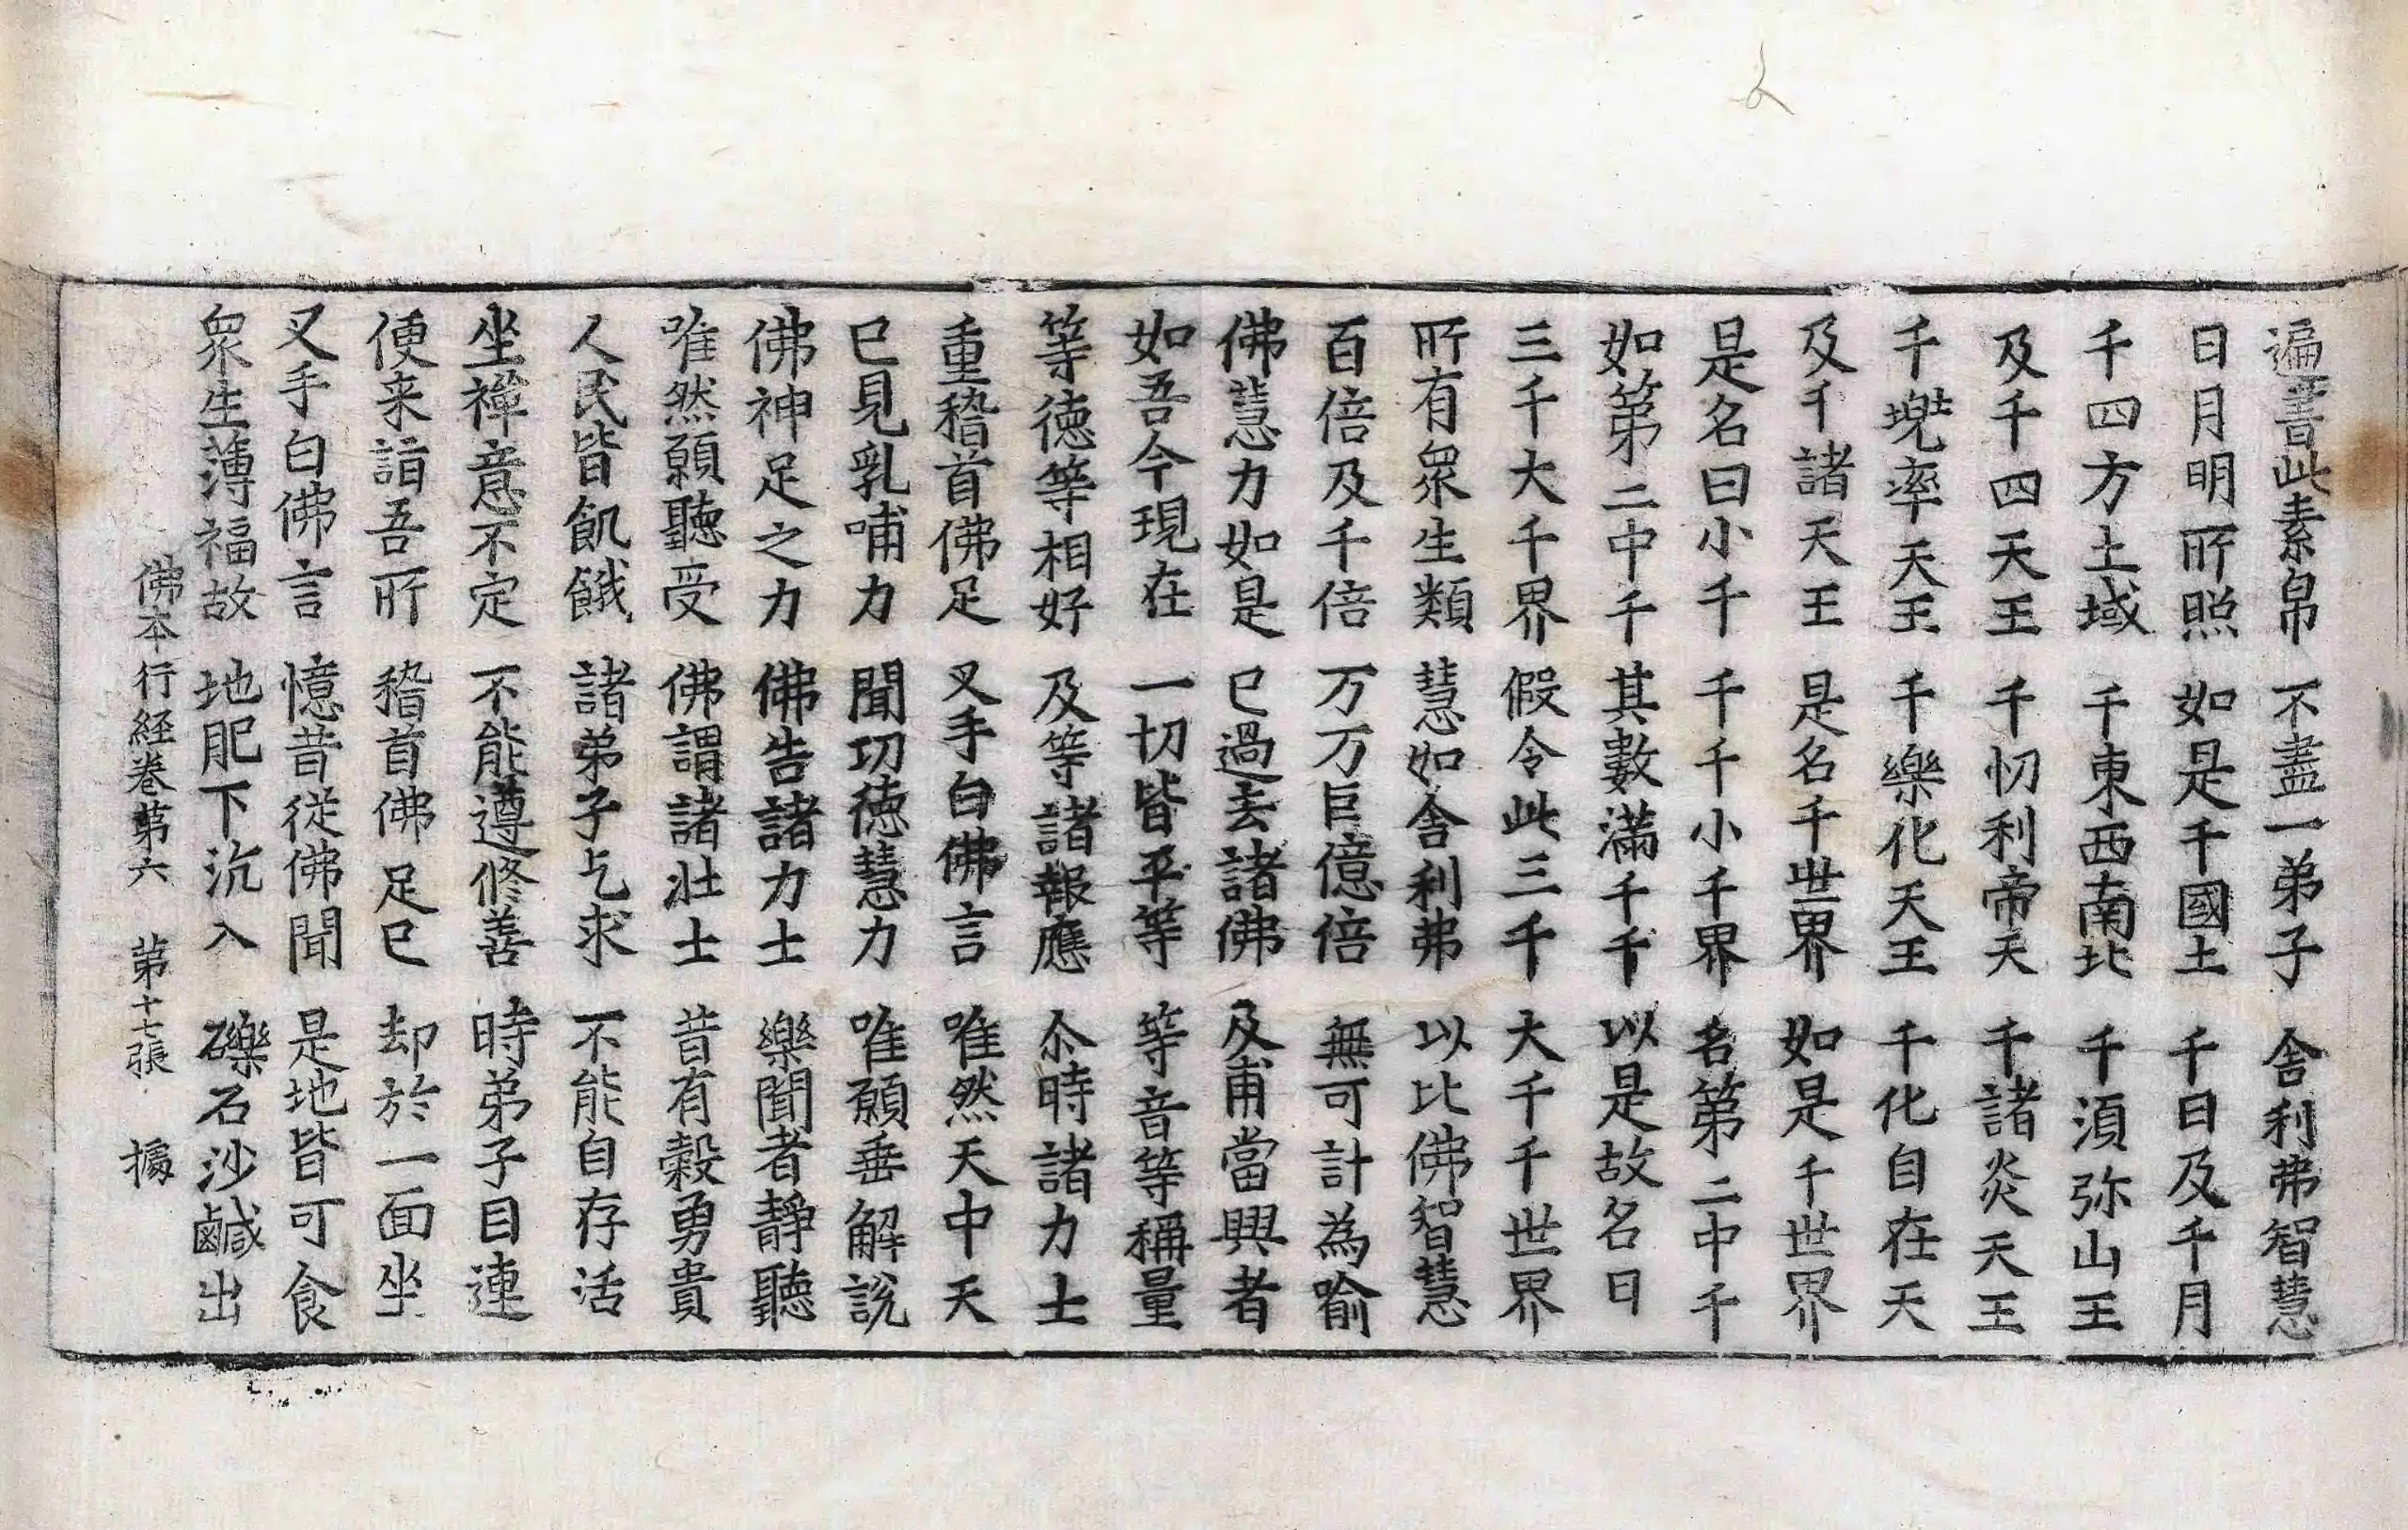 遍書此素帛　不盡一弟子　舎利弗智慧
日月明所照　如是千國土　千日及千月
千四方土域　千東西南北　千湏弥山王
及千四天王　千忉利帝天　千諸炎天王
千兠率天王　千樂化天王　千化自在天
及千諸天王　是名千世界　如是千世界
是名曰小千　千千小千界　名第二中千
如第二中千　其數滿千千　以是故名曰
三千大千界　假令此三千　大千千世界
所有衆生類　慧如舎利弗　以比佛智慧
百倍及千倍　万万巨億倍　無可計為喻
佛慧力如是　已過去諸佛　及甫當興者
如吾今現在　一切皆平等　等音等稱量
等徳等相好　及等諸報應　尒時諸力士
重稽首佛足　叉手白佛言　唯然天中天
已見乳哺力　聞功徳慧力　唯願垂解說
佛神足之力　佛告諸力士　樂聞者靜聽
唯然願聽受　佛謂諸壯士　昔有穀勇貴
人民皆飢餓　諸弟子乞求　不能自存活
坐禪意不定　不能遵修善　時弟子目連
便来詣吾所　稽首佛足已　却於一面坐
叉手白佛言　憶昔從佛聞　是地皆可食
衆生薄福故　地肥下沉入　礫石沙鹹出
佛本行經卷第六　第十七張　據